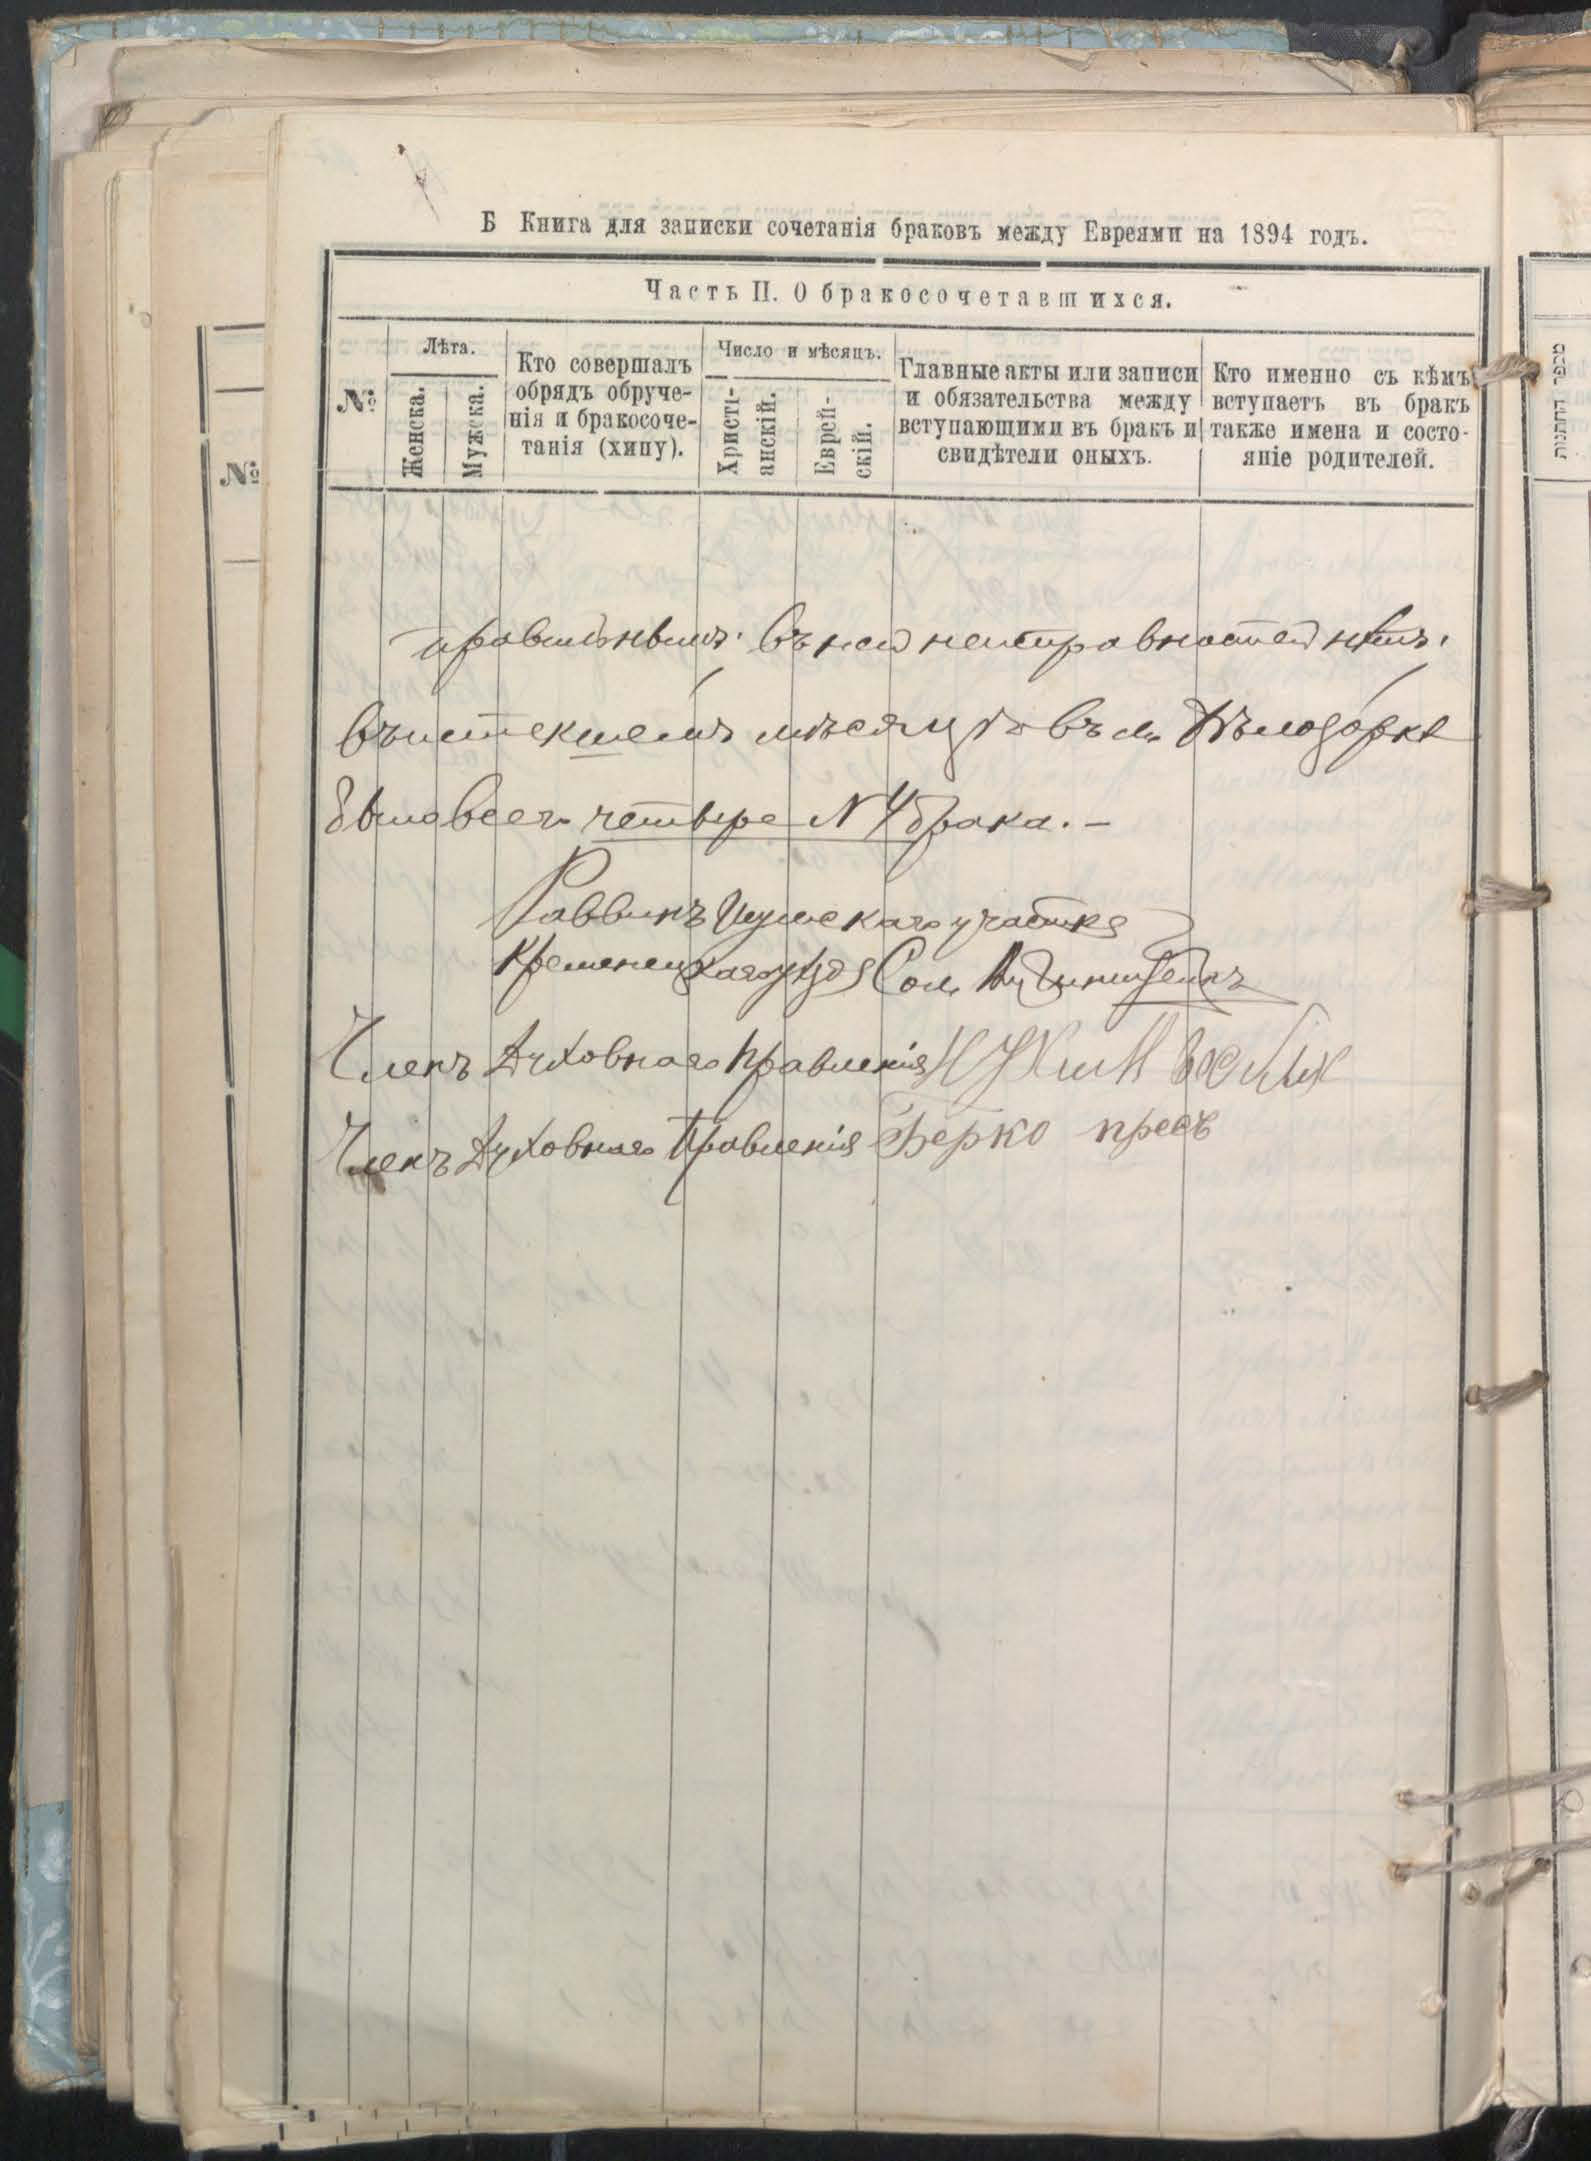 Б Книга для записки сочетанія браковъ между Евреями на 1894 годъ.
Часть II. О бракосочетавшихся.
№
Лѣта.
Женска.
Мужска.
Кто совершалъ
обрядъ обруче-
нія и бракосоче-
танія (хипу).
Число и мѣсяцъ.
Христі-
анскій.
Еврей-
скій.
Главные акты или записи
и обязательства между
вступающими въ бракъ и
свидѣтели оныхъ.
Кто именно съ кѣмъ
вступаетъ въ бракъ
также имена и состо-
яніе родителей.
правильнымъ. въ ней неисправностей нѣтъ.
въ истекшемъ мѣсяцѣ въ м. Бѣлозорке
было всего четыре № 4 брака. —
Раввинъ Шумскаго участка
Кременецкаго уѣзда Сол.
Членъ Духовнаго Правленія
Членъ Духовнаго Правленія Берко пресъ
№
מספר החתונות